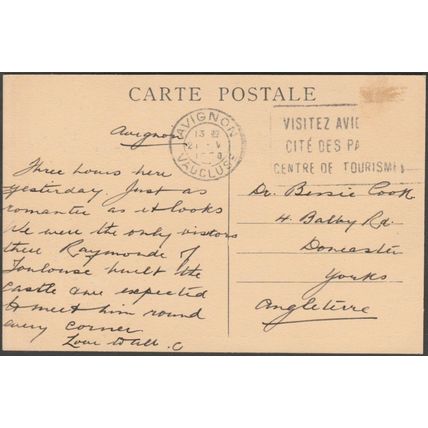 CARTE POSTALE
AVIGNON
VAUCLUSE
13 H
21 - V
VISITEZ AVIG
CITÉ DES PA
CENTRE DE TOURISME
Avignon
Three hours here
yesterday. Just as
romantic as it looks
We were the only visitors
there Raymonde of
Toulouse built the
castle one expected
to meet him round
every corner
Love to all. C
Dr. Bessie Cook
4. Balby Rd.
Doncaster
Yorks
Angleterre